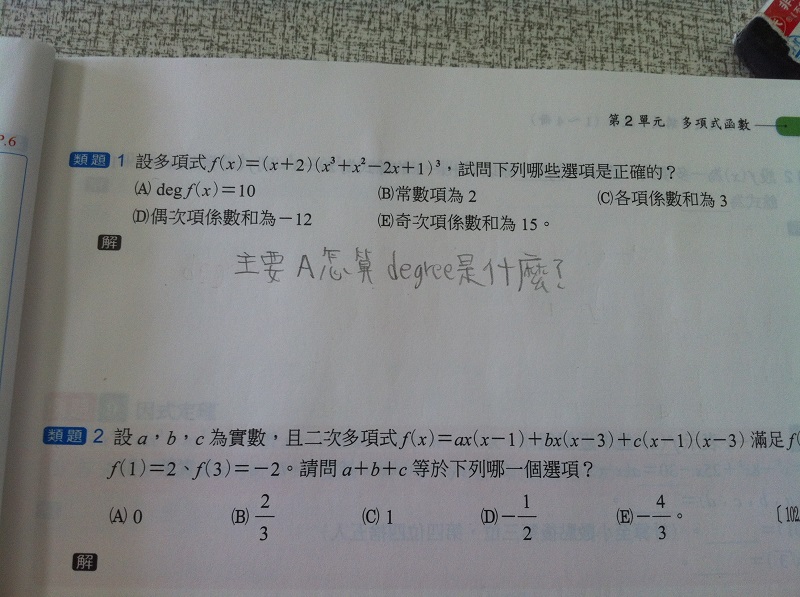 第2單元 多項式函數
P.6
類題 1 設多項式 f(x)=(x+2)(x³+x²−2x+1)³,試問下列哪些選項是正確的?
(A) deg f(x)=10 (B)常數項為 2 (C)各項係數和為 3
(D)偶次項係數和為−12 (E)奇次項係數和為 15。
解
主要 A 怎算 degree是什麼?
類題 2 設 a,b,c 為實數,且二次多項式 f(x)=ax(x−1)+bx(x−3)+c(x−1)(x−3) 滿足 f(
f(1)=2、f(3)=−2。請問 a+b+c 等於下列哪一個選項?
(A) 0 (B) 2/3 (C) 1 (D) −1/2 (E) −4/3。 〔102
解